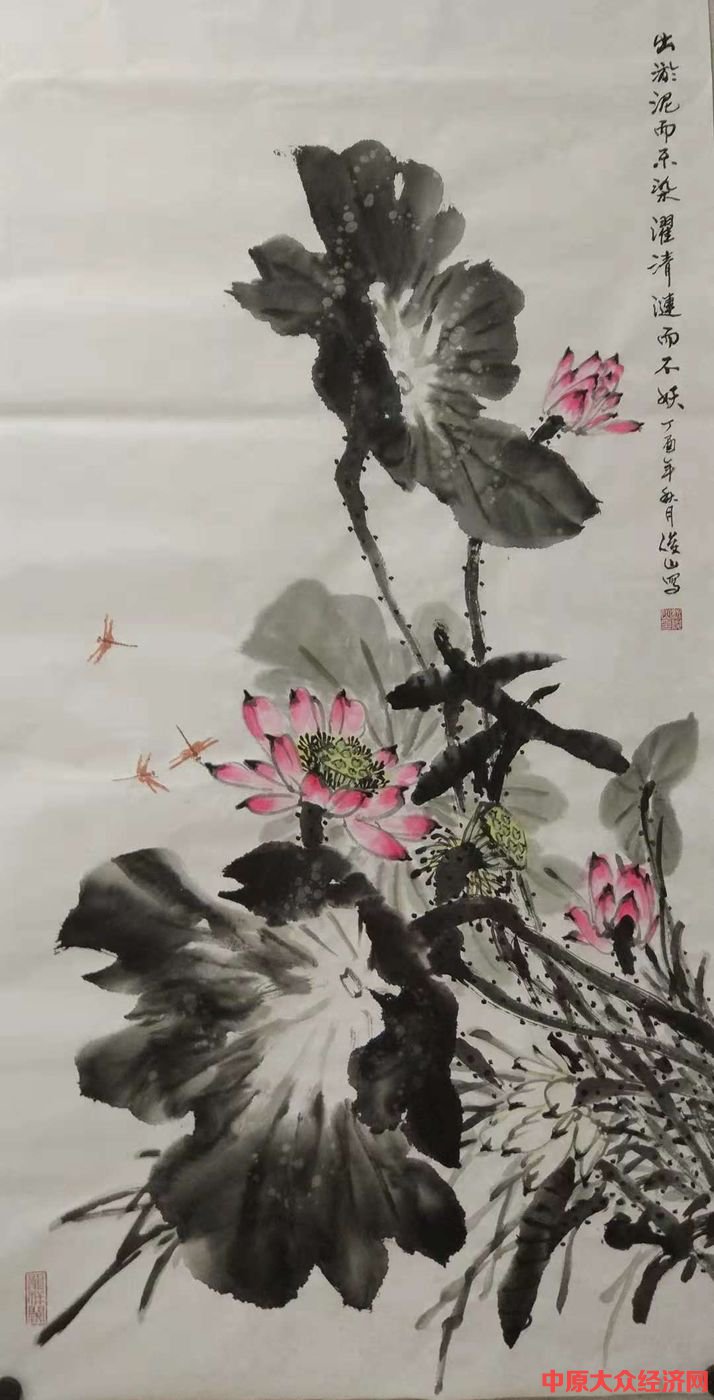 出淤泥而不染濯清涟而不妖丁酉年秋月俊山写
中原大众经济网